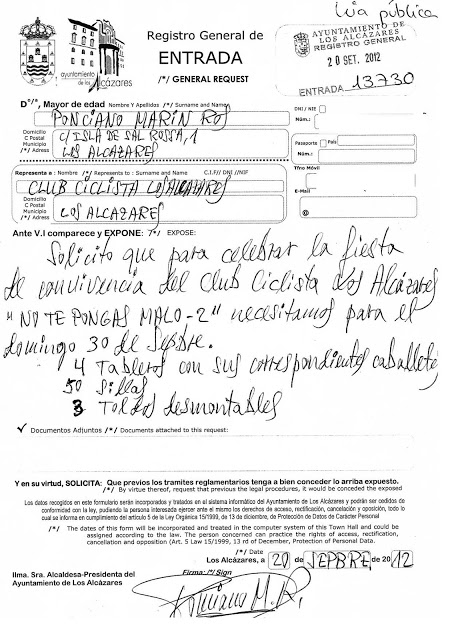 Via pública
Registro General de
ENTRADA
/*/ GENERAL REQUEST
ayuntamiento
de los Alcázares
AYUNTAMIENTO DE
LOS ALCÁZARES
REGISTRO GENERAL
20 SET. 2012
ENTRADA 13730
D°/ª, Mayor de edad Nombre Y Apellidos /*/ Surname and Name
PONCIANO MARIN ROS
DNI / NIE
Núm.:
Domicilio
C Postal
Municipio
/*/ Adress
C/ISLA DE SAL ROSSA, 1
LOS ALCAZARES
Pasaporte País
Núm.:
Representa a: Nombre /*/ Represents to: Surname and Name C.I.F// DNI //NIF
CLUB CICLISTA LOS ALCAZARES
Tfno Móvil
Domicilio
C Postal
Municipio
/*/ Adress
LOS ALCAZARES
E-Mail
@
Ante V.I comparece y EXPONE: /*/ EXPOSE:
Solicito que para celebrar la fiesta
de convivencia del Club Ciclista Los Alcázares
"NO TE PONGAS MALO-2" necesitamos para el
domingo 30 de Sepbre.
4 Tableros con sus correspondientes caballetes
50 sillas
3 Toldos desmontables
✓ Documentos Adjuntos /*/ Documents attached to this request:
Y en su virtud, SOLICITA: Que previos los tramites reglamentarios tenga a bien conceder lo arriba expuesto.
/*/ By virtue thereof, request that previous the legal procedures, it would be conceded the exposed
Los datos recogidos en este formulario serán incorporados y tratados en el sistema informático del Ayuntamiento de Los Alcázares y podrán ser cedidos de
conformidad con la ley, pudiendo la persona interesada ejercer ante el mismo los derechos de acceso, rectificación, cancelación y oposición, todo lo
cual se informa en cumplimiento del artículo 5 de la Ley Orgánica 15/1999, de 13 de diciembre, de Protección de Datos de Carácter Personal
/*/ The dates of this form will be incorporated and treated in the computer system of this Town Hall and could be
assigned according to the law. The person concerned can practice the rights of access, rectification,
cancellation and opposition (Art. 5 Law 15/1999, 13 rd of December, Protection of Personal Data.
/*/ Date
Los Alcázares, a 20 de SEPBRE. de 2012
Ilma. Sra. Alcaldesa-Presidenta del
Ayuntamiento de Los Alcázares
Firma: /*/ Sign
Ponciano M.R.